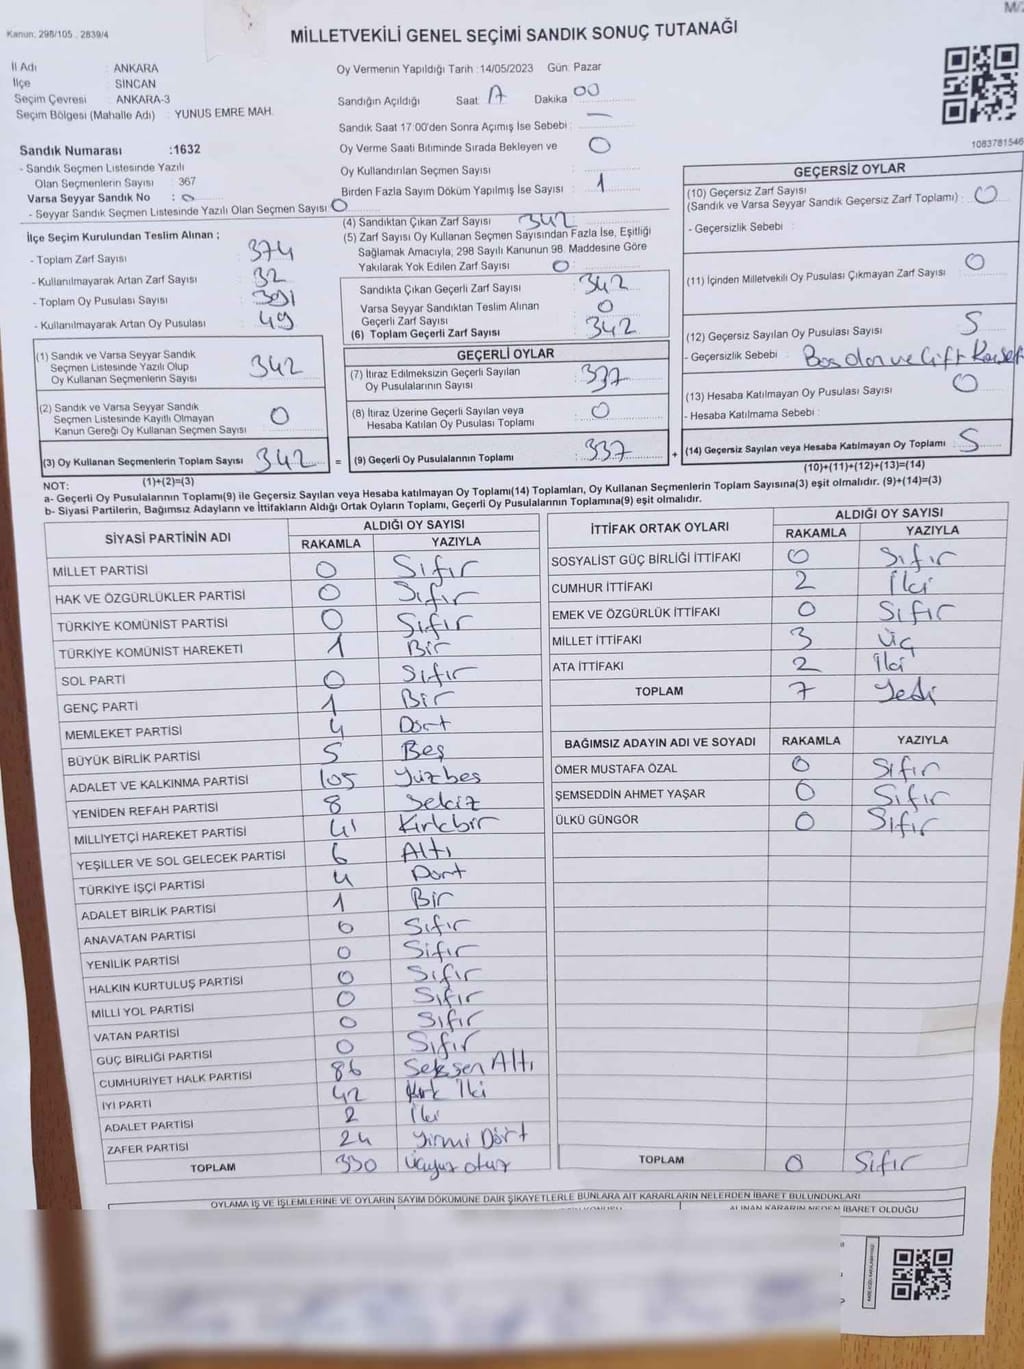 M/2
Kanun: 298/105 . 2839/4
MİLLETVEKİLİ GENEL SEÇİMİ SANDIK SONUÇ TUTANAĞI
İl Adı : ANKARA
İlçe SİNCAN
Seçim Çevresi : ANKARA-3
Seçim Bölgesi (Mahalle Adı) : YUNUS EMRE MAH.
Sandık Numarası :1632
- Sandık Seçmen Listesinde Yazılı
Olan Seçmenlerin Sayısı : 367
Varsa Seyyar Sandık No : 0
- Seyyar Sandık Seçmen Listesinde Yazılı Olan Seçmen Sayısı 0
Oy Vermenin Yapıldığı Tarih :14/05/2023 Gün: Pazar
Sandığın Açıldığı Saat Dakika 00
Sandık Saat 17:00'den Sonra Açımış İse Sebebi : —
Oy Verme Saati Bitiminde Sırada Bekleyen ve 0
Oy Kullandırılan Seçmen Sayısı
Birden Fazla Sayım Döküm Yapılmış İse Sayısı : 1
1083781546
İlçe Seçim Kurulundan Teslim Alınan ;
- Toplam Zarf Sayısı : 374
- Kullanılmayarak Artan Zarf Sayısı : 32
- Toplam Oy Pusulası Sayısı : 391
- Kullanılmayarak Artan Oy Pusulası : 49
(1) Sandık ve Varsa Seyyar Sandık
Seçmen Listesinde Yazılı Olup
Oy Kullanan Seçmenlerin Sayısı 342
(2) Sandık ve Varsa Seyyar Sandık
Seçmen Listesinde Kayıtlı Olmayan
Kanun Gereği Oy Kullanan Seçmen Sayısı 0
(3) Oy Kullanan Seçmenlerin Toplam Sayısı 342 =
(1)+(2)=(3)
(4) Sandıktan Çıkan Zarf Sayısı 342
(5) Zarf Sayısı Oy Kullanan Seçmen Sayısından Fazla İse, Eşitliği
Sağlamak Amacıyla, 298 Sayılı Kanunun 98. Maddesine Göre
Yakılarak Yok Edilen Zarf Sayısı : 0
Sandıkta Çıkan Geçerli Zarf Sayısı : 342
Varsa Seyyar Sandıktan Teslim Alınan
Geçerli Zarf Sayısı : 0
(6) Toplam Geçerli Zarf Sayısı : 342
GEÇERLİ OYLAR
(7) İtiraz Edilmeksizin Geçerli Sayılan
Oy Pusulalarının Sayısı : 337
(8) İtiraz Üzerine Geçerli Sayılan veya
Hesaba Katılan Oy Pusulası Toplamı : 0
(9) Geçerli Oy Pusulalarının Toplamı : 337 +
GEÇERSİZ OYLAR
(10) Geçersiz Zarf Sayısı
(Sandık ve Varsa Seyyar Sandık Geçersiz Zarf Toplamı) : 0
- Geçersizlik Sebebi :
(11) İçinden Milletvekili Oy Pusulası Çıkmayan Zarf Sayısı : 0
(12) Geçersiz Sayılan Oy Pusulası Sayısı : 5
- Geçersizlik Sebebi : Boş olan ve Çift
(13) Hesaba Katılmayan Oy Pusulası Sayısı : 0
- Hesaba Katılmama Sebebi :
(14) Geçersiz Sayılan veya Hesaba Katılmayan Oy Toplamı : 5
(10)+(11)+(12)+(13)=(14)
NOT:
a- Geçerli Oy Pusulalarının Toplamı(9) ile Geçersiz Sayılan veya Hesaba katılmayan Oy Toplamı(14) Toplamları, Oy Kullanan Seçmenlerin Toplam Sayısına(3) eşit olmalıdır. (9)+(14)=(3)
b- Siyasi Partilerin, Bağımsız Adayların ve İttifakların Aldığı Ortak Oyların Toplamı, Geçerli Oy Pusulalarının Toplamına(9) eşit olmalıdır.
SİYASİ PARTİNİN ADI ALDIĞI OY SAYISI
RAKAMLA YAZIYLA
MİLLET PARTİSİ 0 Sıfır
HAK VE ÖZGÜRLÜKLER PARTİSİ 0 Sıfır
TÜRKİYE KOMÜNİST PARTİSİ 0 Sıfır
TÜRKİYE KOMÜNİST HAREKETİ 1 Bir
SOL PARTİ 0 Sıfır
GENÇ PARTİ 1 Bir
MEMLEKET PARTİSİ 4 Dört
BÜYÜK BİRLİK PARTİSİ 5 Beş
ADALET VE KALKINMA PARTİSİ 105 Yüzbeş
YENİDEN REFAH PARTİSİ 8 Sekiz
MİLLİYETÇİ HAREKET PARTİSİ 41 Kırkbir
YEŞİLLER VE SOL GELECEK PARTİSİ 6 Altı
TÜRKİYE İŞÇİ PARTİSİ 4 Dört
ADALET BİRLİK PARTİSİ 1 Bir
ANAVATAN PARTİSİ 0 Sıfır
YENİLİK PARTİSİ 0 Sıfır
HALKIN KURTULUŞ PARTİSİ 0 Sıfır
MİLLİ YOL PARTİSİ 0 Sıfır
VATAN PARTİSİ 0 Sıfır
GÜÇ BİRLİĞİ PARTİSİ 0 Sıfır
CUMHURİYET HALK PARTİSİ 86 Seksen Altı
İYİ PARTİ 42 Kırk İki
ADALET PARTİSİ 2 İki
ZAFER PARTİSİ 24 Yirmi Dört
TOPLAM 330 Üçyüz otuz
İTTİFAK ORTAK OYLARI ALDIĞI OY SAYISI
RAKAMLA YAZIYLA
SOSYALİST GÜÇ BİRLİĞİ İTTİFAKI 0 Sıfır
CUMHUR İTTİFAKI 2 İki
EMEK VE ÖZGÜRLÜK İTTİFAKI 0 Sıfır
MİLLET İTTİFAKI 3 Üç
ATA İTTİFAKI 2 İki
TOPLAM 7 Yedi
BAĞIMSIZ ADAYIN ADI VE SOYADI RAKAMLA YAZIYLA
ÖMER MUSTAFA ÖZAL 0 Sıfır
ŞEMSEDDİN AHMET YAŞAR 0 Sıfır
ÜLKÜ GÜNGÖR 0 Sıfır
TOPLAM 0 Sıfır
OYLAMA İŞ VE İŞLEMLERİNE VE OYLARIN SAYIM DÖKÜMÜNE DAİR ŞİKAYETLERLE BUNLARA AİT KARARLARIN NELERDEN İBARET BULUNDUKLARI
ALINAN KARARIN NEDEN İBARET OLDUĞU